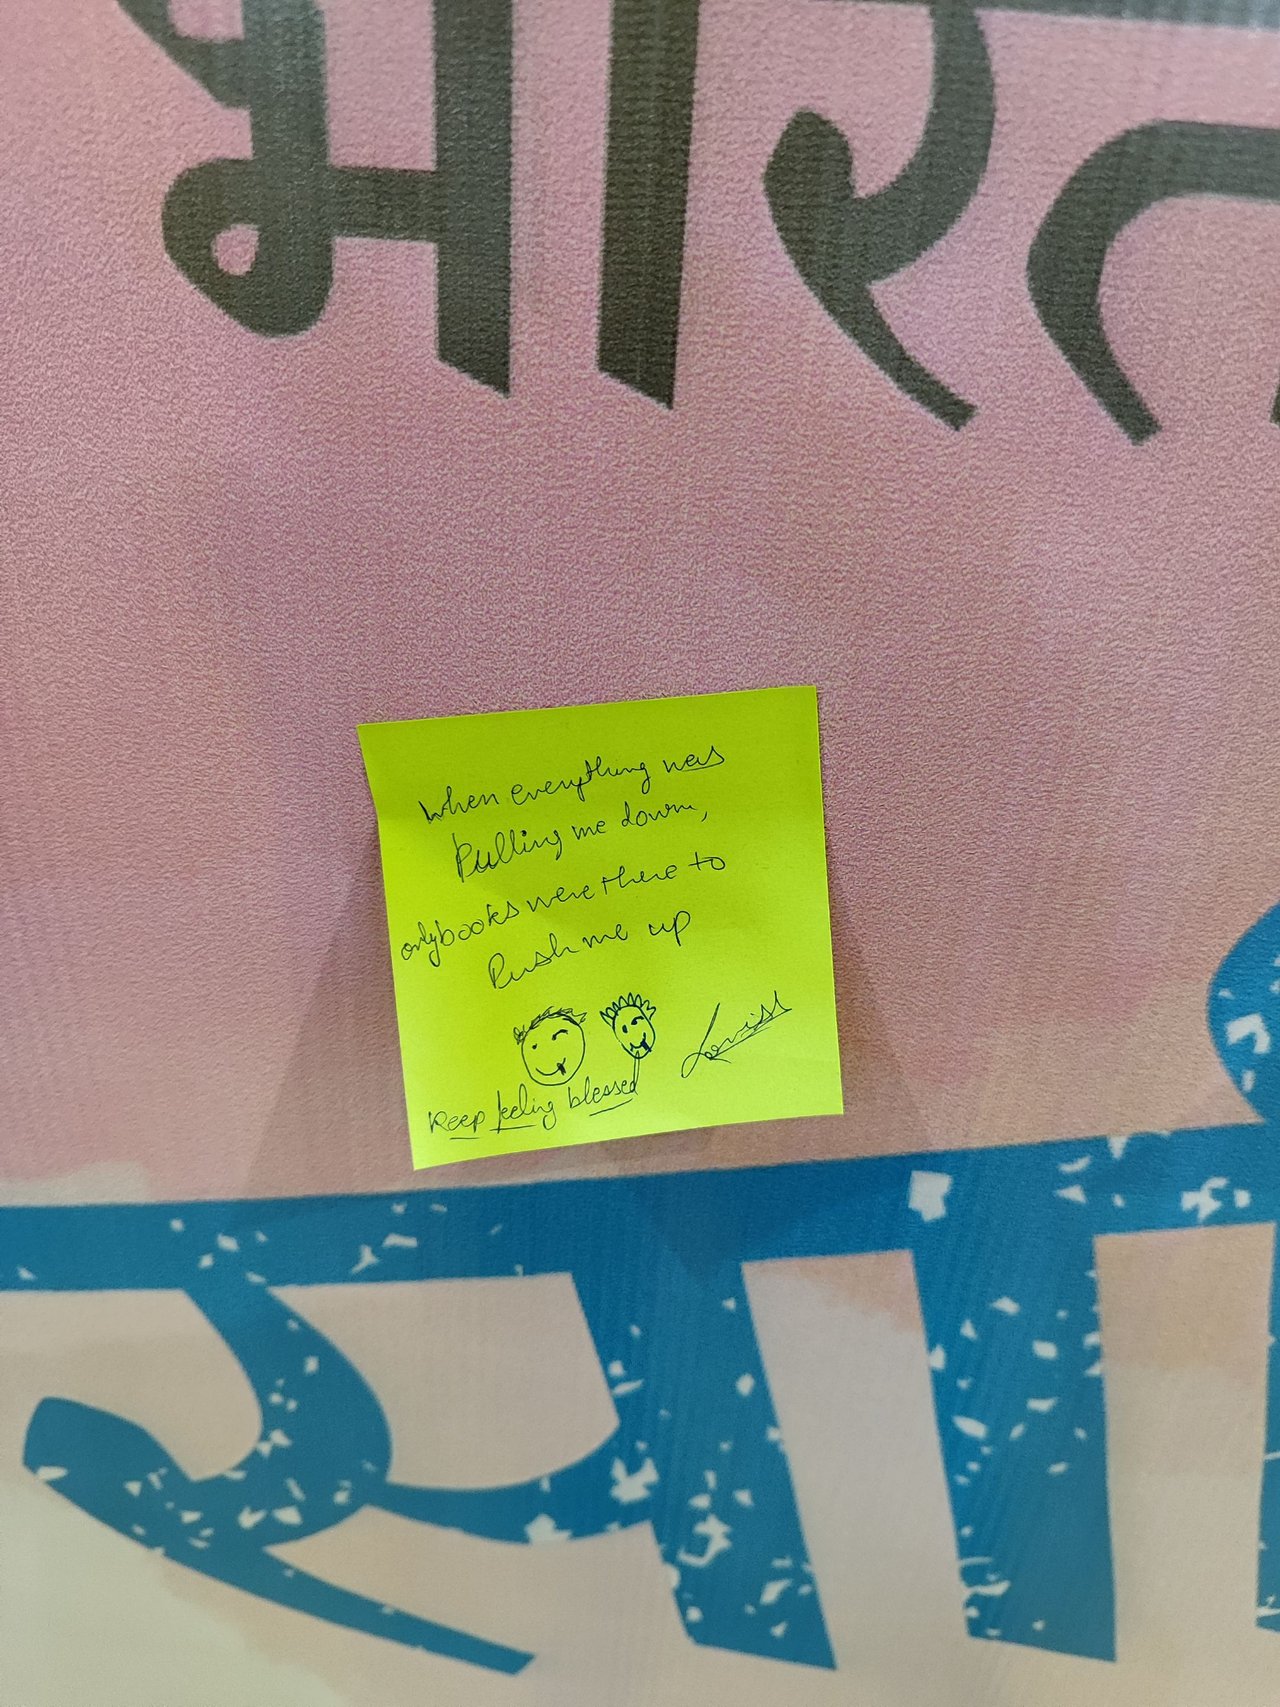 भारत
When everything was
Pulling me down,
only books were there to
Push me up
Keep feeling blessed
सा